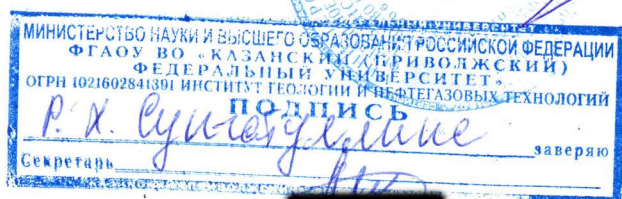 МИНИСТЕРСТВО НАУКИ И ВЫСШЕГО ОБРАЗОВАНИЯ РОССИЙСКОЙ ФЕДЕРАЦИИ
ФГАОУ ВО «КАЗАНСКИЙ (ПРИВОЛЖСКИЙ)
ФЕДЕРАЛЬНЫЙ УНИВЕРСИТЕТ»
ОГРН 1021602841391 ИНСТИТУТ ГЕОЛОГИИ И НЕФТЕГАЗОВЫХ ТЕХНОЛОГИЙ
ПОДПИСЬ
Р. Х. Сунгатуллина
заверяю
Секретарь